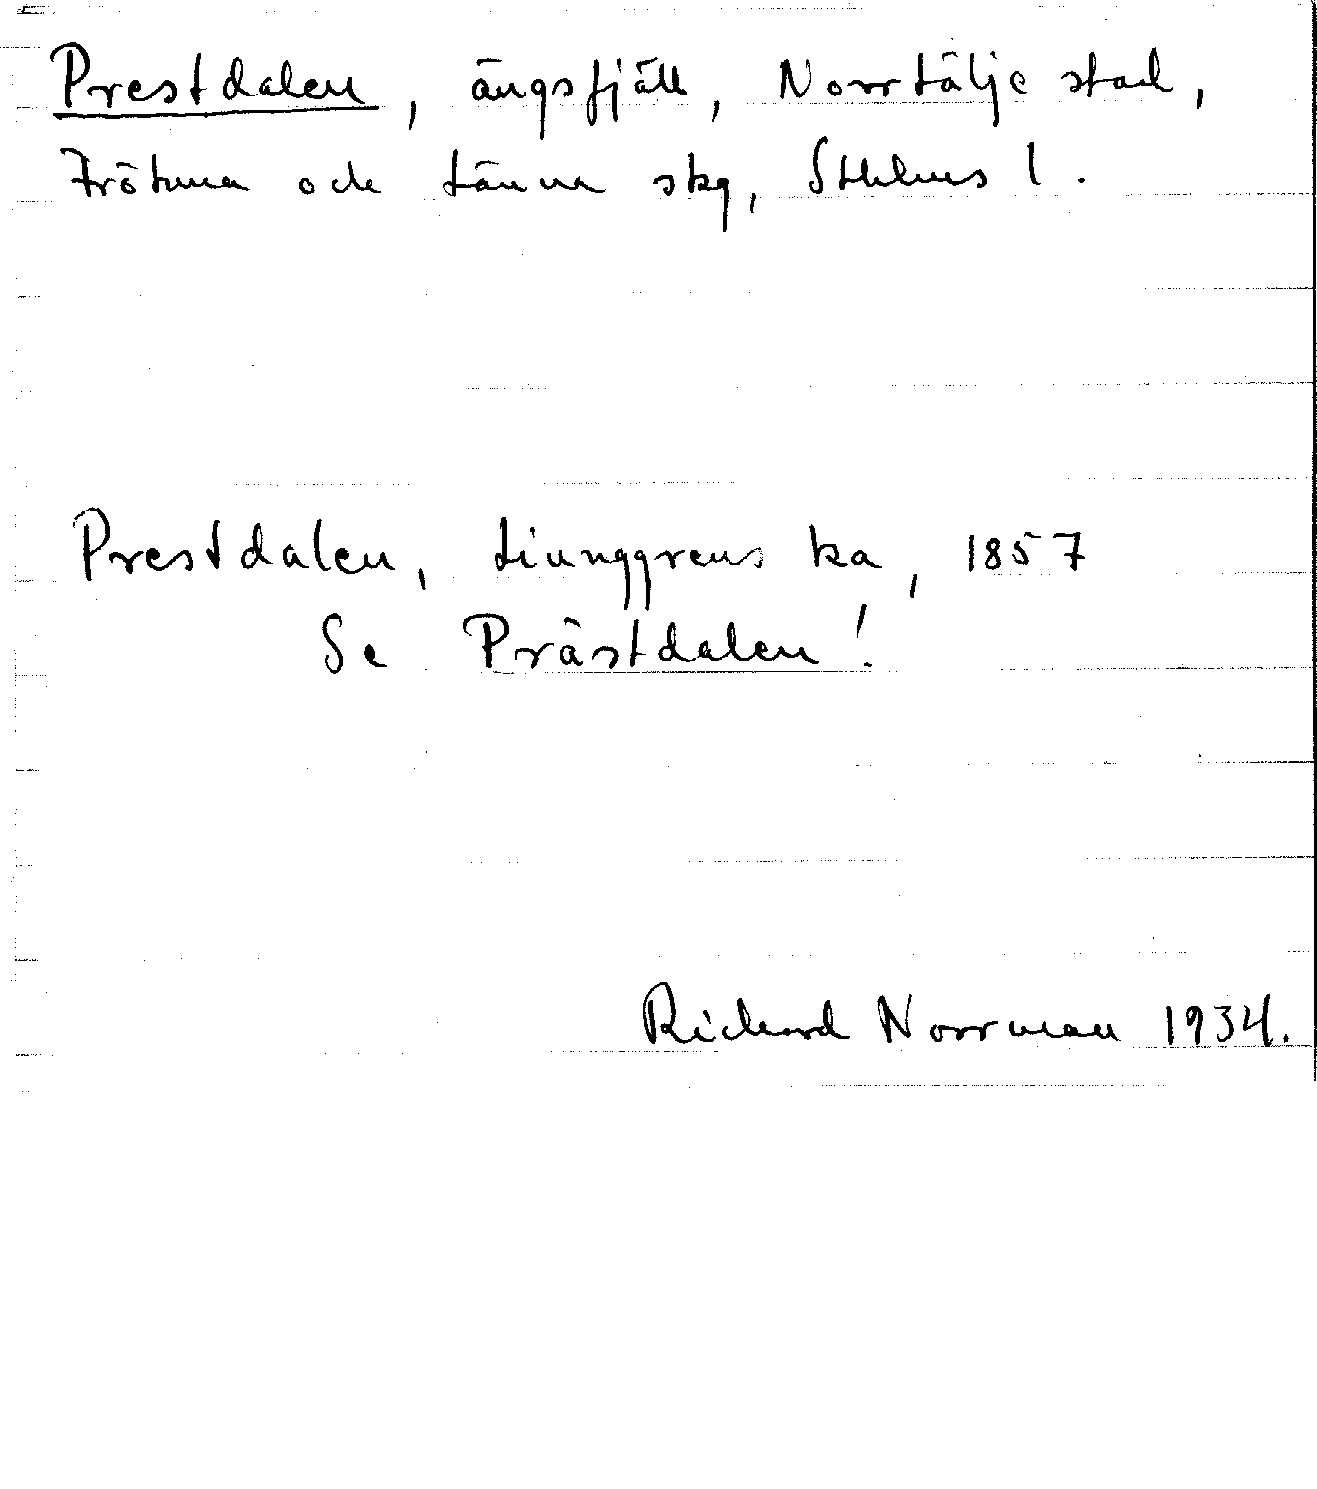 Prestdalen, ängsfjäll, Norrtälje stad,
Frötuna och Länna skg, Sthlms l.
Prestdalen, Liunggrens ka, 1857
Se Prästdalen!
Richard Norrman 1934.